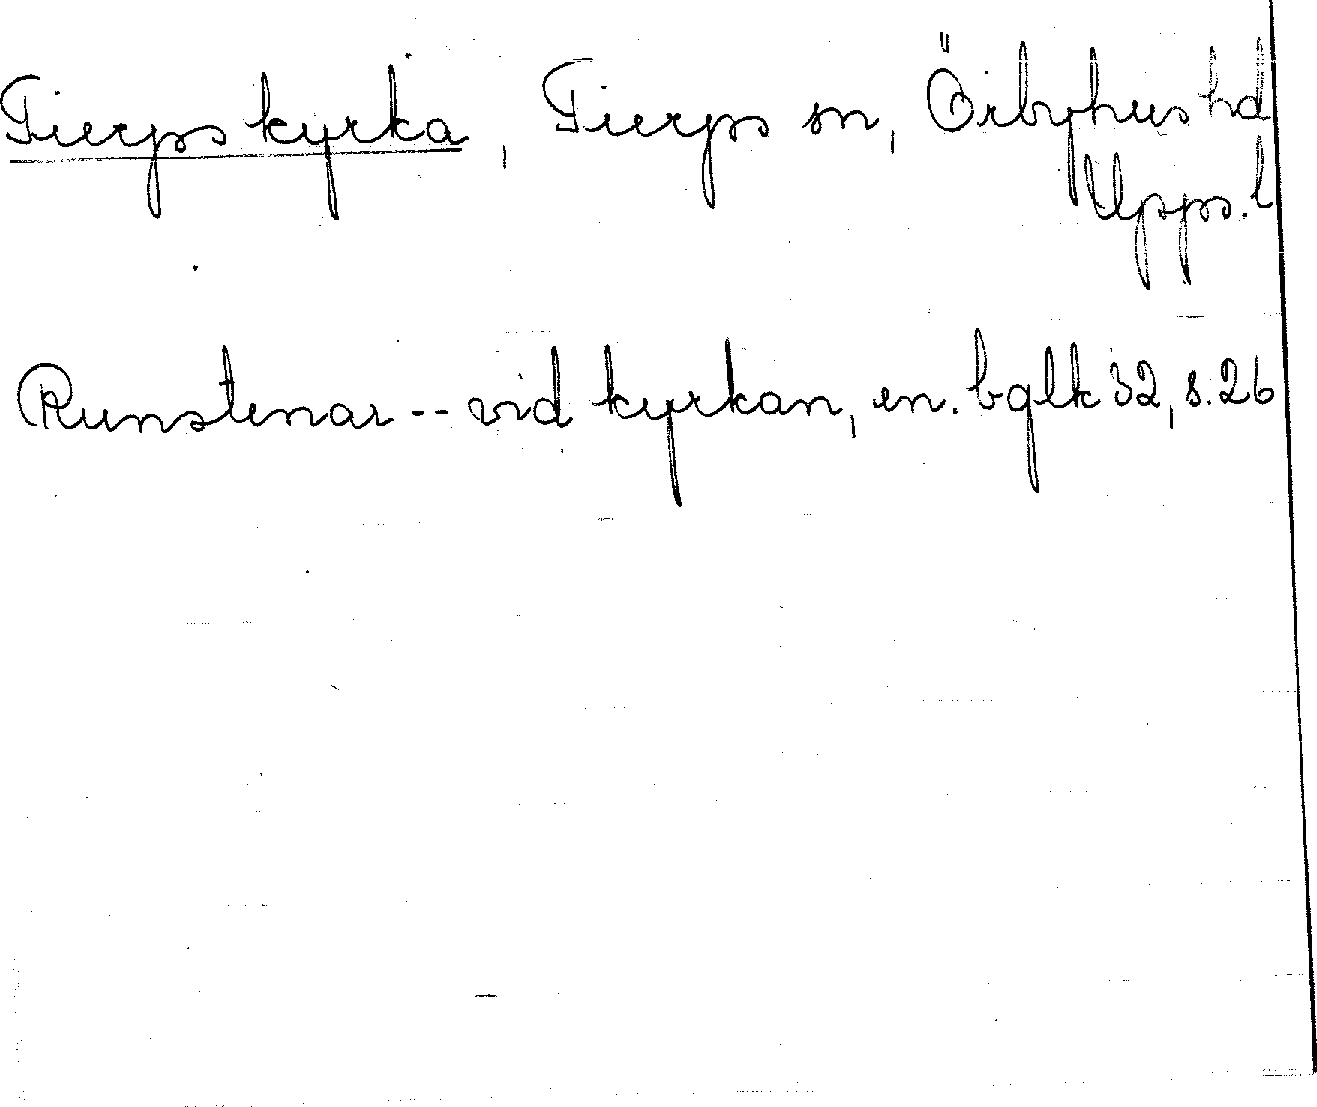 Tierps kyrka, Tierps sn, Örbyhus hd
Upps. l
Runstenar -- vid kyrkan, en. bglk 32, s. 26